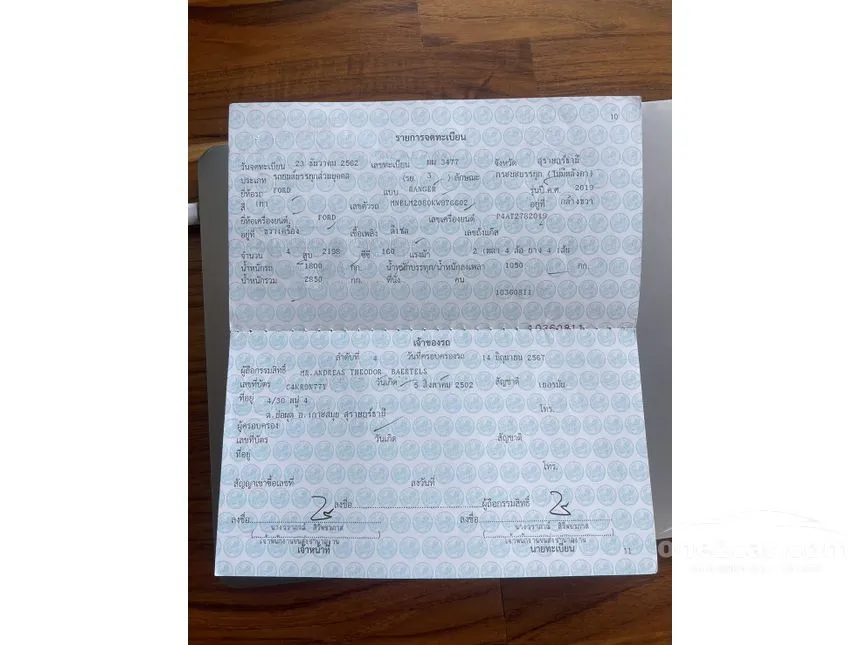 10
รายการจดทะเบียน
วันจดทะเบียน 23 ธันวาคม 2562 เลขทะเบียน ผผ 3477 จังหวัด สุราษฎร์ธานี
ประเภท รถยนต์บรรทุกส่วนบุคคล (รย 3 ) ลักษณะ กระบะบรรทุก (ไม่มีหลังคา)
ยี่ห้อรถ FORD แบบ RANGER รุ่นปี ค.ศ 2019
สี เทา เลขตัวรถ อยู่ที่ กลางขวา
ยี่ห้อเครื่องยนต์ FORD เลขเครื่องยนต์ P4AT2782019
อยู่ที่ ขวาเครื่อง เชื้อเพลิง ดีเซล เลขถังแก๊ส
จำนวน 4 สูบ 2198 ซีซี 160 แรงม้า 2 เพลา 4 ล้อ ยาง 4 เส้น
น้ำหนักรถ 1800 กก. น้ำหนักบรรทุก/น้ำหนักลงเพลา 1050 กก.
น้ำหนักรวม 2850 กก. ที่นั่ง คน
10360811
10360811
เจ้าของรถ
ลำดับที่ 4 วันที่ครอบครองรถ 14 มิถุนายน 2567
ผู้ถือกรรมสิทธิ์ MR.ANDREAS THEODOR BAERTELS
เลขที่บัตร C4KRDN77Y วันเกิด 5 สิงหาคม 2502 สัญชาติ เยอรมัน
ที่อยู่ 4/30 หมู่ 4 โทร.
ต.บ่อผุด อ.เกาะสมุย สุราษฎร์ธานี
ผู้ครอบครอง
เลขที่บัตร วันเกิด สัญชาติ
ที่อยู่
โทร.
สัญญาเช่าซื้อเลขที่ ลงวันที่
ลงชื่อ ผู้ถือกรรมสิทธิ์
ลงชื่อ ลงชื่อ
เจ้าพนักงานขนส่งชำนาญงาน เจ้าพนักงานขนส่งชำนาญงาน
เจ้าหน้าที่ นายทะเบียน
11
one2car.com